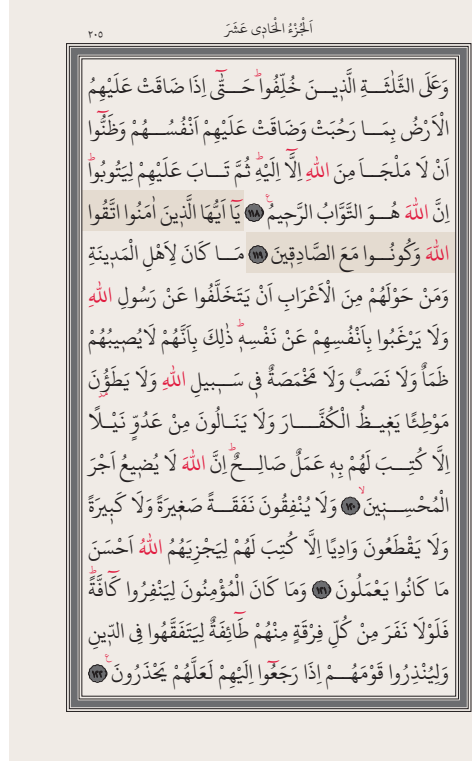 اَلْجُزْءُ الْحَادِى عَشَرَ
٢٠٥
وَعَلَى الثَّلٰثَةِ الَّذ۪ينَ خُلِّفُواۜ حَتّٰٓى اِذَا ضَاقَتْ عَلَيْهِمُ
الْاَرْضُ بِمَا رَحُبَتْ وَضَاقَتْ عَلَيْهِمْ اَنْفُسُهُمْ وَظَنُّٓوا
اَنْ لَا مَلْجَاَ مِنَ اللّٰهِ اِلَّٓا اِلَيْهِۜ ثُمَّ تَابَ عَلَيْهِمْ لِيَتُوبُواۜ
اِنَّ اللّٰهَ هُوَ التَّوَّابُ الرَّح۪يمُ۟ ﴿١١٨﴾ يَٓا اَيُّهَا الَّذ۪ينَ اٰمَنُوا اتَّقُوا
اللّٰهَ وَكُونُوا مَعَ الصَّادِق۪ينَ ﴿١١٩﴾ مَا كَانَ لِاَهْلِ الْمَد۪ينَةِ
وَمَنْ حَوْلَهُمْ مِنَ الْاَعْرَابِ اَنْ يَتَخَلَّفُوا عَنْ رَسُولِ اللّٰهِ
وَلَا يَرْغَبُوا بِاَنْفُسِهِمْ عَنْ نَفْسِه۪ۜ ذٰلِكَ بِاَنَّهُمْ لَا يُص۪يبُهُمْ
ظَمَاٌ وَلَا نَصَبٌ وَلَا مَخْمَصَةٌ ف۪ي سَب۪يلِ اللّٰهِ وَلَا يَطَؤُ۫نَ
مَوْطِئًا يَغ۪يظُ الْكُفَّارَ وَلَا يَنَالُونَ مِنْ عَدُوٍّ نَيْلًا
اِلَّا كُتِبَ لَهُمْ بِه۪ عَمَلٌ صَالِحٌۜ اِنَّ اللّٰهَ لَا يُض۪يعُ اَجْرَ
الْمُحْسِن۪ينَۙ ﴿١٢٠﴾ وَلَا يُنْفِقُونَ نَفَقَةً صَغ۪يرَةً وَلَا كَب۪يرَةً
وَلَا يَقْطَعُونَ وَادِيًا اِلَّا كُتِبَ لَهُمْ لِيَجْزِيَهُمُ اللّٰهُ اَحْسَنَ
مَا كَانُوا يَعْمَلُونَ ﴿١٢١﴾ وَمَا كَانَ الْمُؤْمِنُونَ لِيَنْفِرُوا كَٓافَّةًۜ
فَلَوْلَا نَفَرَ مِنْ كُلِّ فِرْقَةٍ مِنْهُمْ طَٓائِفَةٌ لِيَتَفَقَّهُوا فِي الدّ۪ينِ
وَلِيُنْذِرُوا قَوْمَهُمْ اِذَا رَجَعُٓوا اِلَيْهِمْ لَعَلَّهُمْ يَحْذَرُونَ۟ ﴿١٢٢﴾